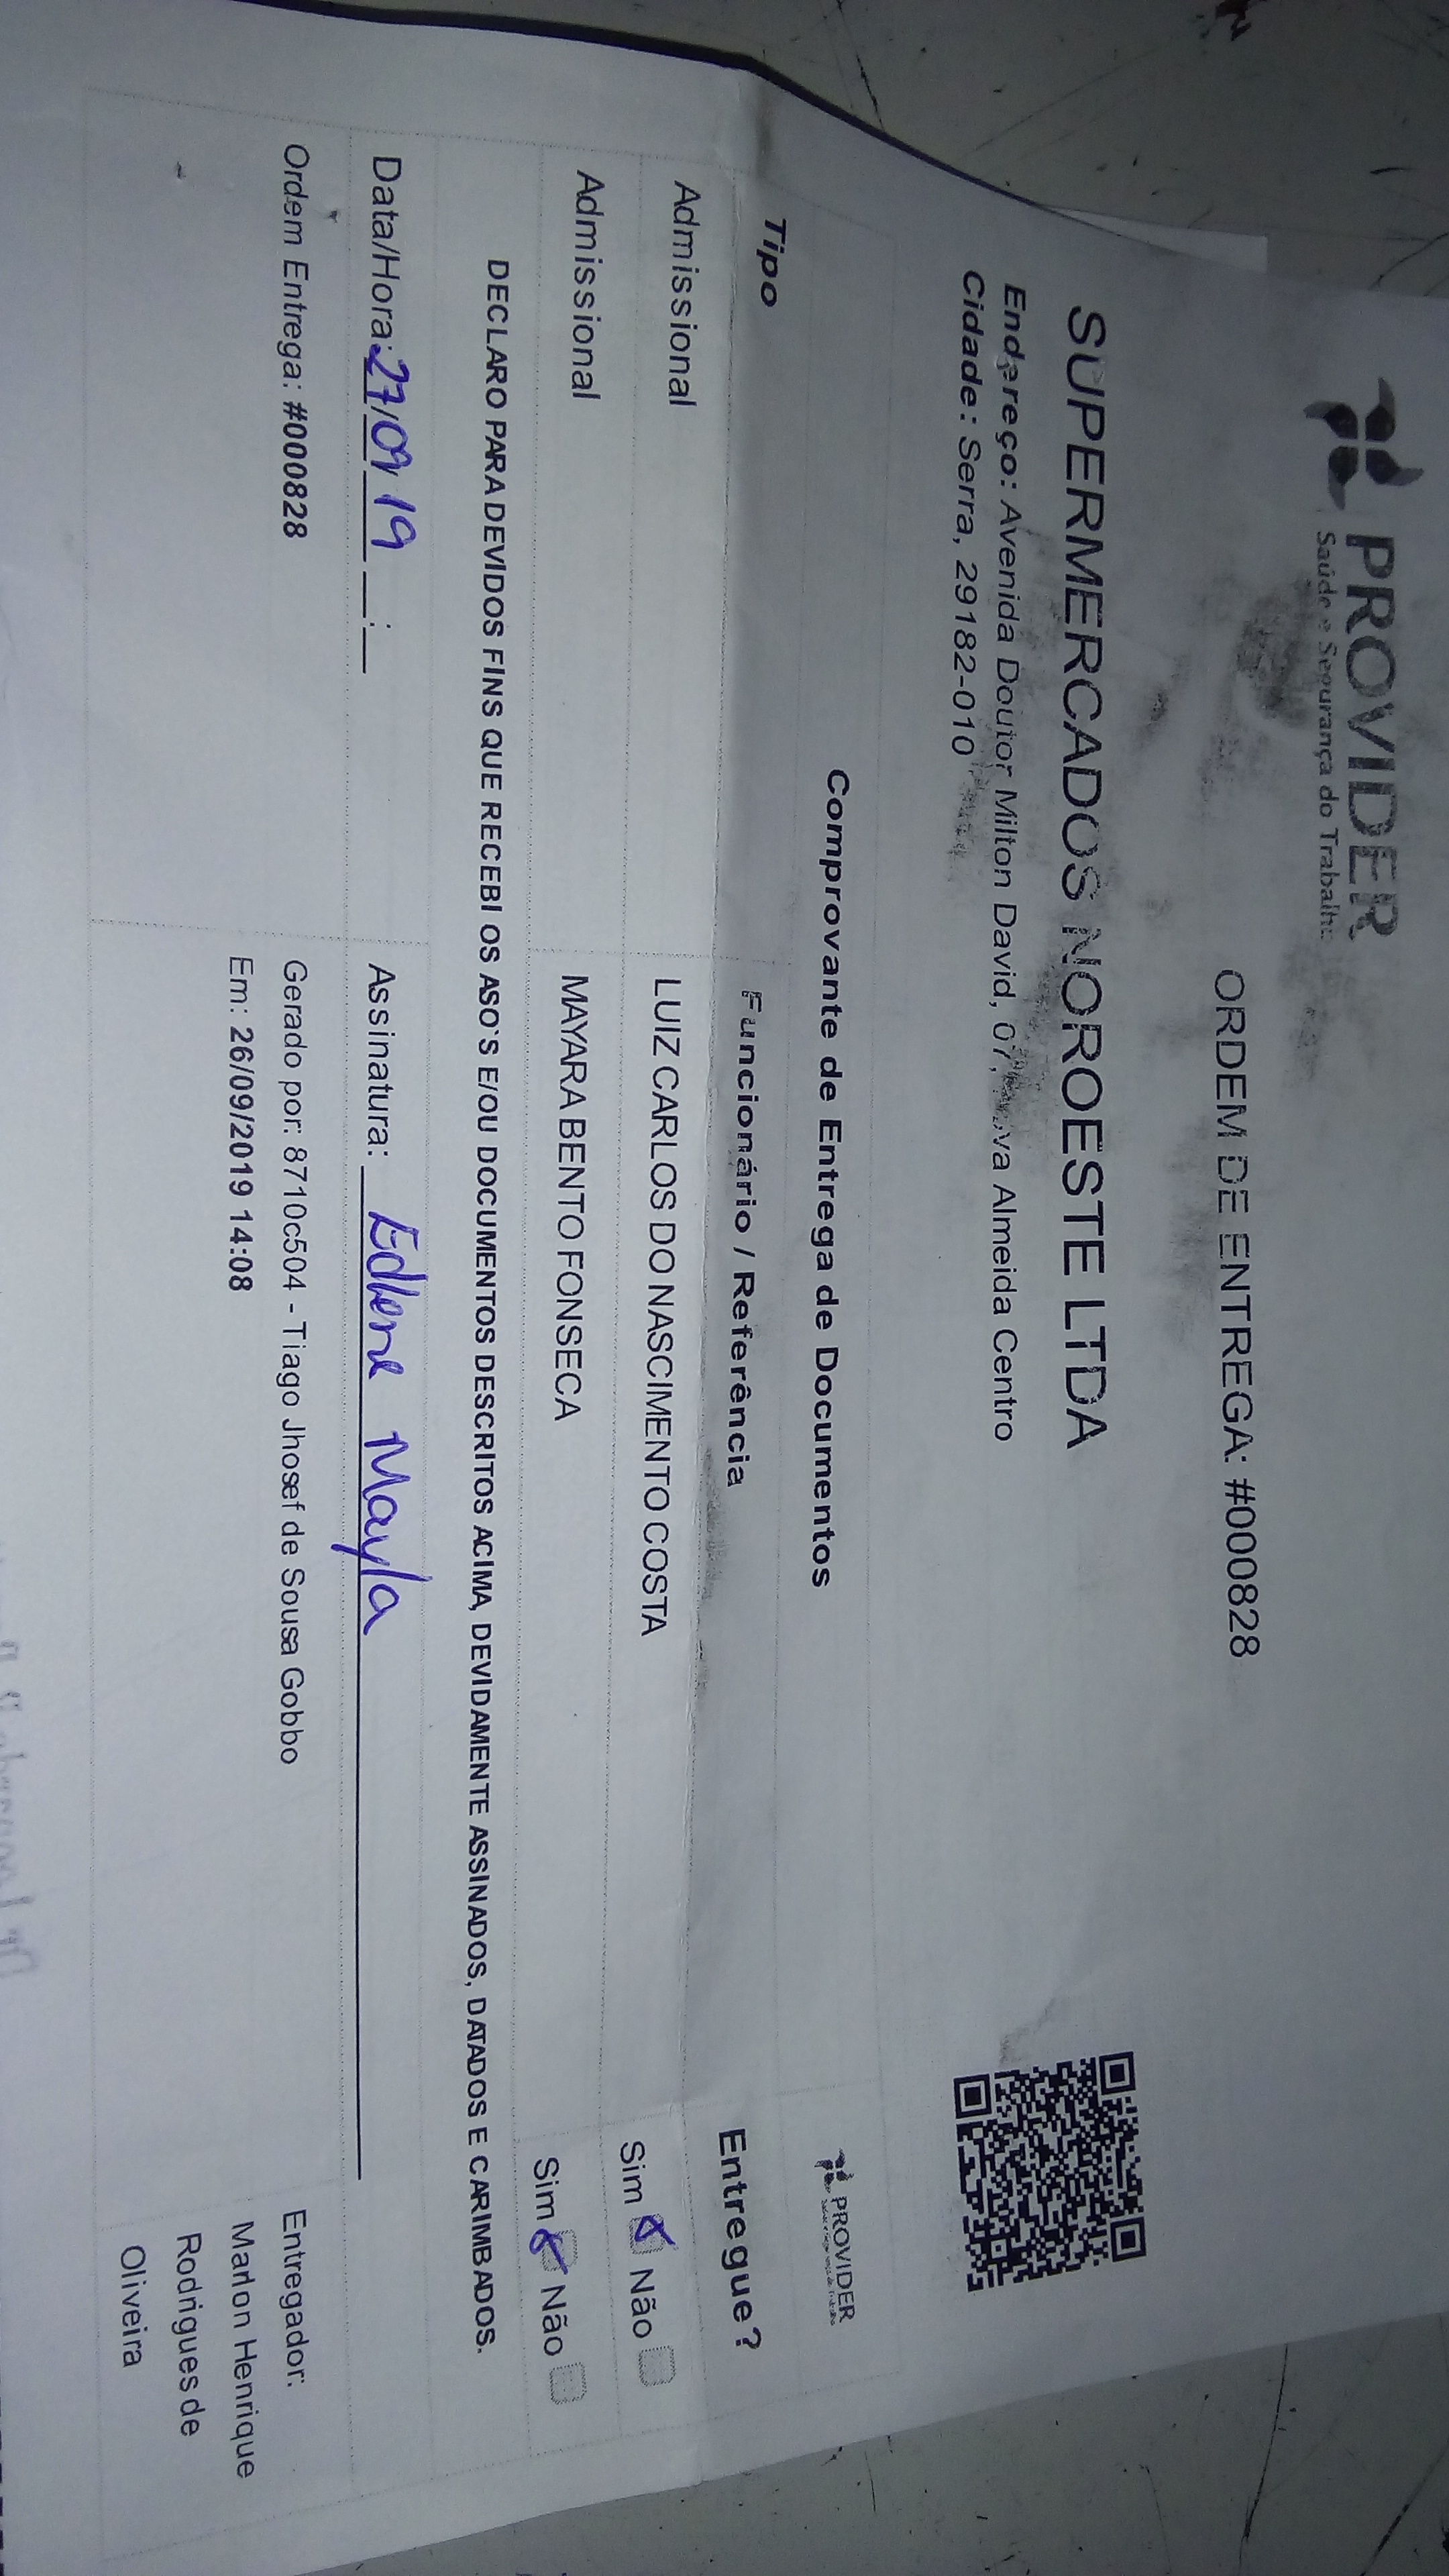 PROVIDER
Saúde e Segurança do Trabalho
ORDEM DE ENTREGA: #000828
SUPERMERCADOS NOROESTE LTDA
Endereço: Avenida Doutor Milton David, 07, Almeida Centro
Cidade: Serra, 29182-010
Comprovante de Entrega de Documentos
PROVIDER
Tipo Funcionário / Referência Entregue?
Admissional LUIZ CARLOS DO NASCIMENTO COSTA Sim Não
Admissional MAYARA BENTO FONSECA Sim Não
DECLARO PARA DEVIDOS FINS QUE RECEBI OS ASO`S E/OU DOCUMENTOS DESCRITOS ACIMA, DEVIDAMENTE ASSINADOS, DATADOS E CARIMBADOS.
Data/Hora: 27/09/19 __:__ Assinatura: Mayla
Ordem Entrega: #000828 Gerado por: 8710c504 - Tiago Jhosef de Sousa Gobbo Entregador:
Em: 26/09/2019 14:08 Marlon Henrique
Rodrigues de
Oliveira